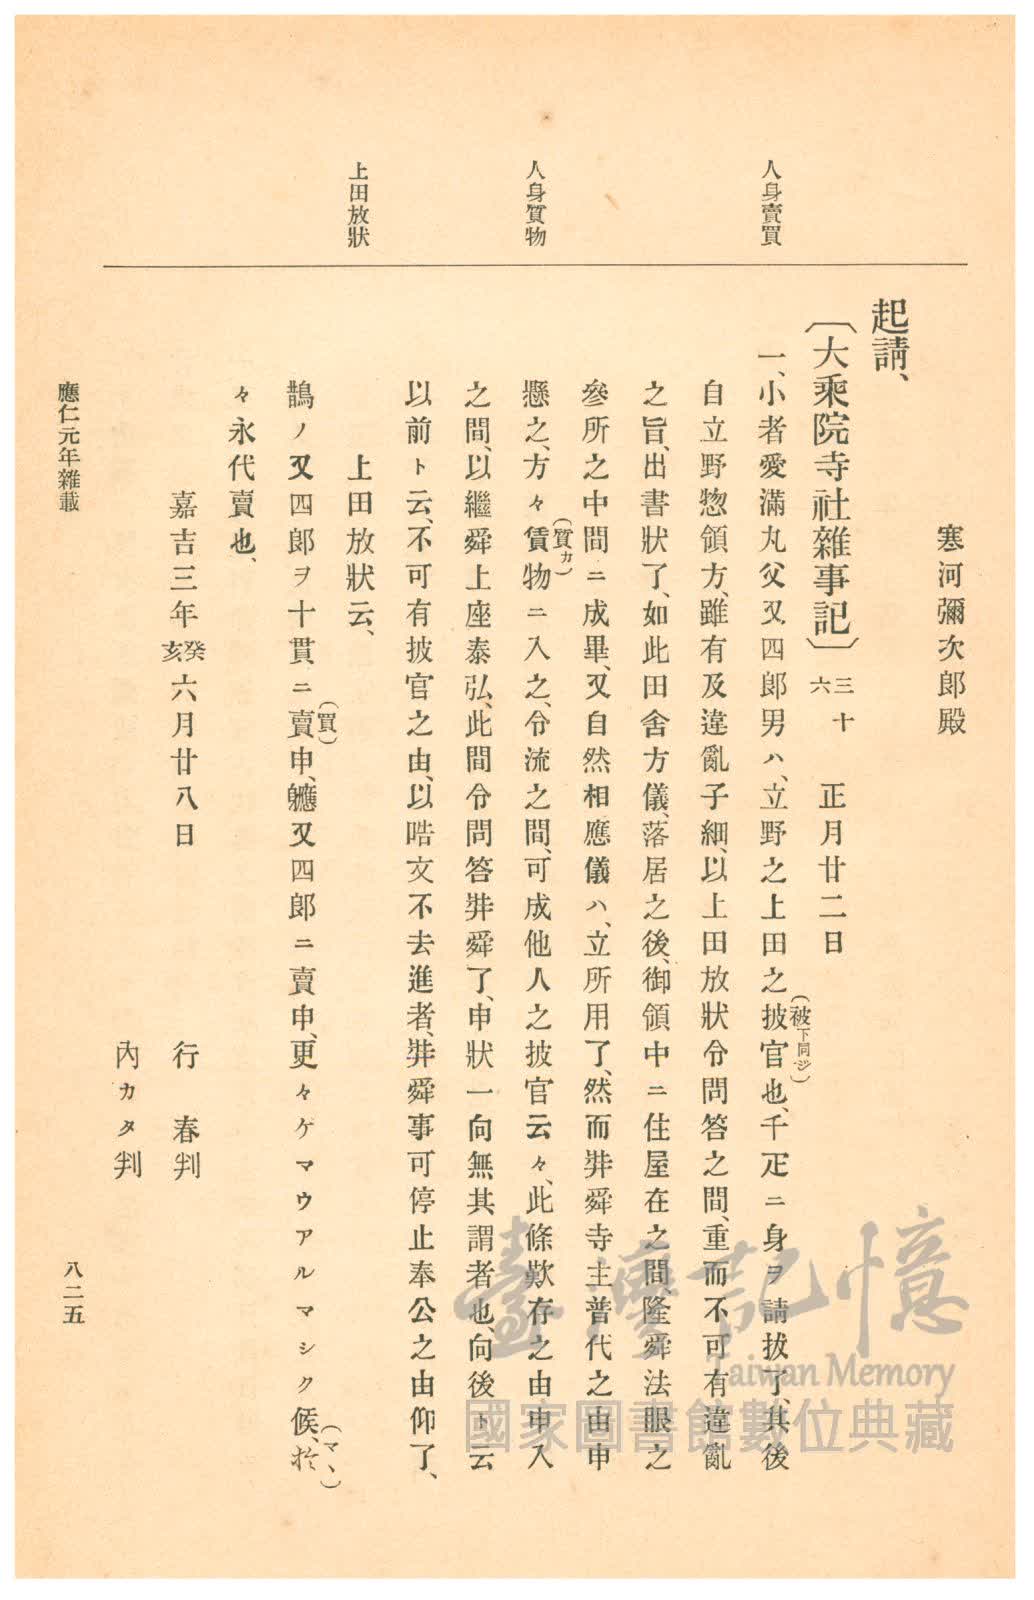 人身賣買
人身質物
上田放狀
寒河彌次郎殿
起請、
〔大乘院寺社雜事記〕三十六 正月廿二日
一、小者愛滿丸父又四郎男ハ、立野之上田之披官也、千疋ニ身ヲ請拔了、其後
(被下同ジ)
自立野惣領方、雖有及違亂子細、以上田放狀令問答之間、重而不可有違亂
之旨、出書狀了、如此田舍方儀、落居之後、御領中ニ住屋在之間、隆舜法眼之
參所之中間ニ成畢、又自然相應儀ハ、立所用了、然而舛舜寺主普代之由申
懸之、方々賃物ニ入之、令流之間、可成他人之披官云々、此條歎存之由申入
(質カ)
之間、以繼舜上座泰弘、此間令問答舛舜了、申狀一向無其謂者也、向後ト云
以前ト云、不可有披官之由、以哠文不去進者、舛舜事可停止奉公之由仰了、
上田放狀云、
鵲ノ又四郎ヲ十貫ニ賣申、軈又四郎ニ賣申、更々ゲマウアルマシク候、於
(買)
(マヽ)
々永代賣也、
嘉吉三年癸亥六月廿八日 行春判
內カタ判
應仁元年雜載
八二五
臺灣記憶
Taiwan Memory
國家圖書館數位典藏